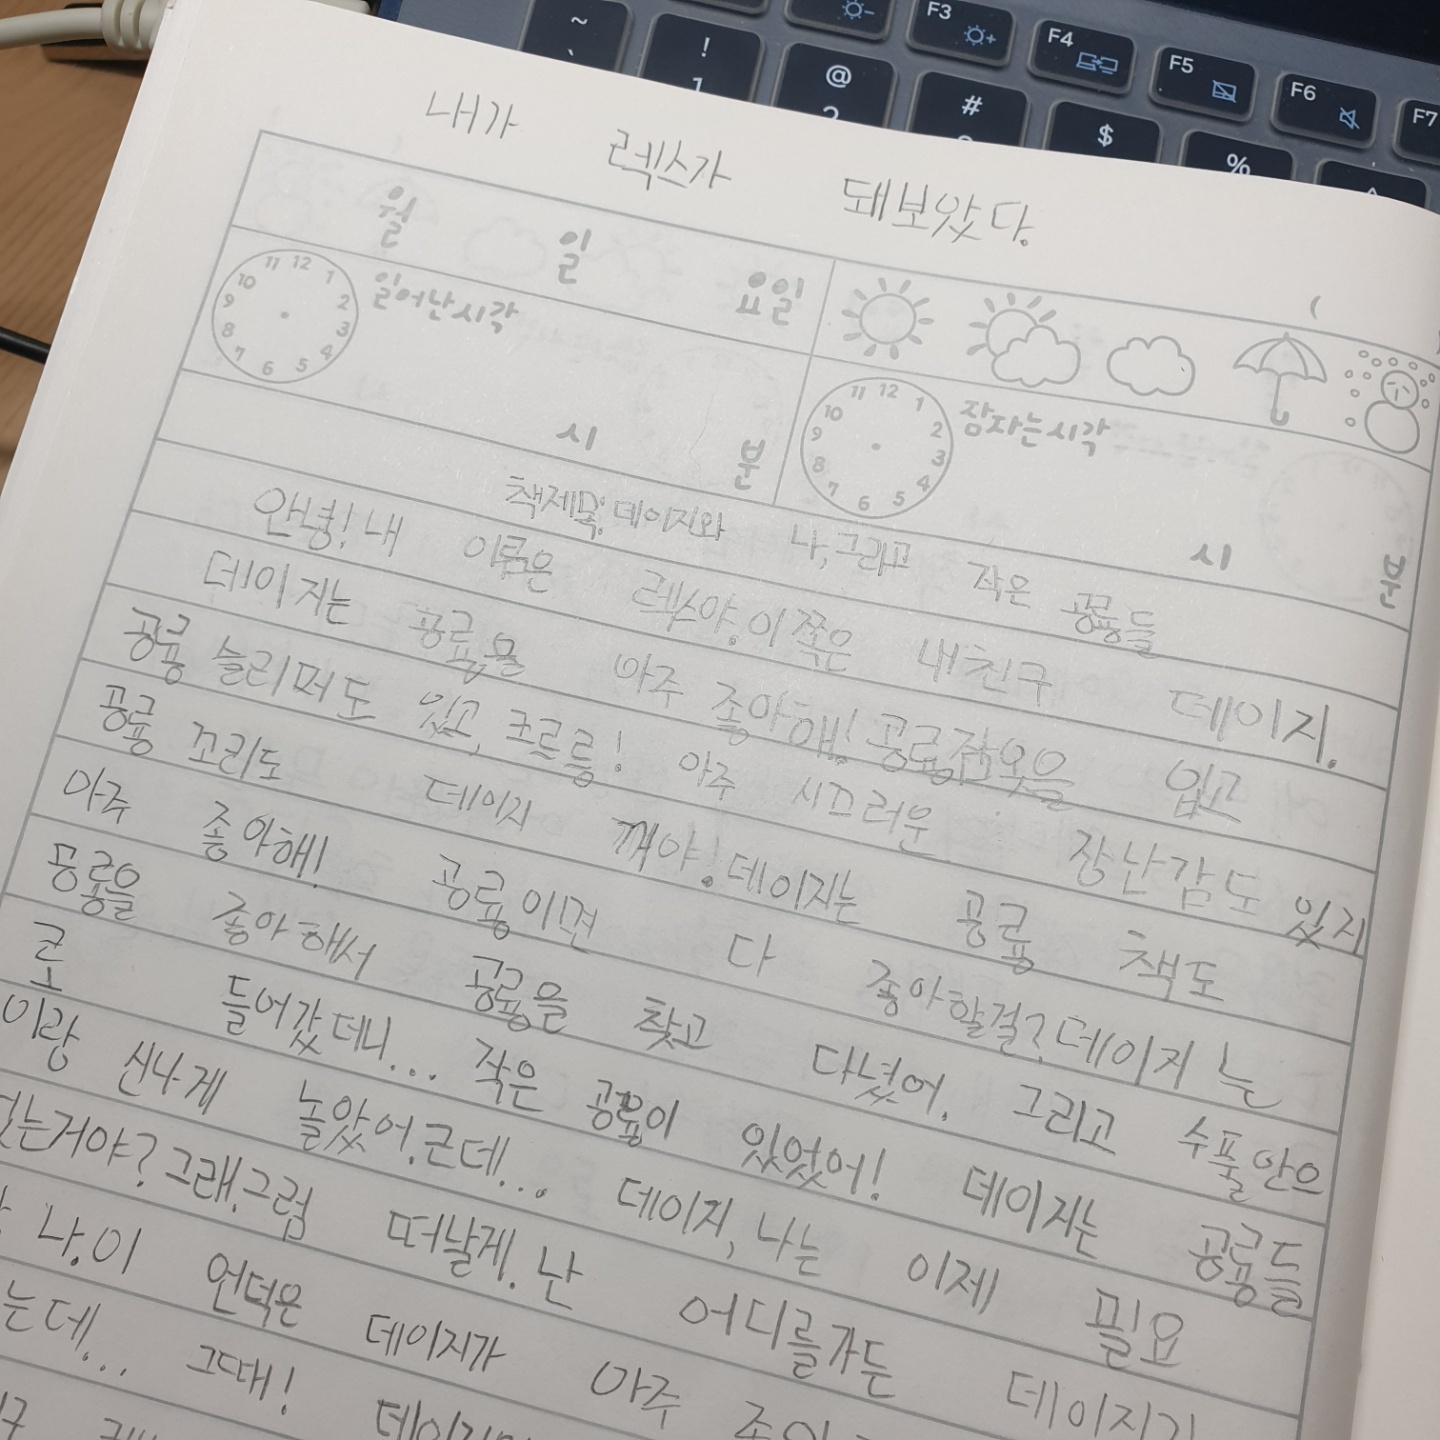 ~ ! @ # $ %
` 1 2
F3 F4 F5 F6 F7
내가 렉스가 돼보았다.
월 일 요일
일어난시각
11 12 1 2 3 4 5 6 7 8 9 10
시 분
잠자는시각
11 12 1 2 3 4 5 6 7 8 9 10
시 분
책제목: 데이지와 나, 그리고 작은 공룡들
안녕! 내 이름은 렉스야. 이쪽은 내친구 데이지.
데이지는 공룡을 아주 좋아해! 공룡잠옷을 입고
공룡 슬리퍼도 있고, 크르릉! 아주 시끄러운 장난감도 있지
공룡 꼬리도 데이지 꺼야! 데이지는 공룡 책도
아주 좋아해! 공룡이면 다 좋아할걸? 데이지는
공룡을 좋아해서 공룡을 찾고 다녔어. 그리고 수풀안으
로 들어갔더니... 작은 공룡이 있었어! 데이지는 공룡들
이랑 신나게 놀았어. 근데... 데이지, 나는 이제 필요
는거야? 그래. 그럼 떠날게. 난 어디를가든 데이지
나. 이 언덕은 데이지가 아주
는데... 그때!